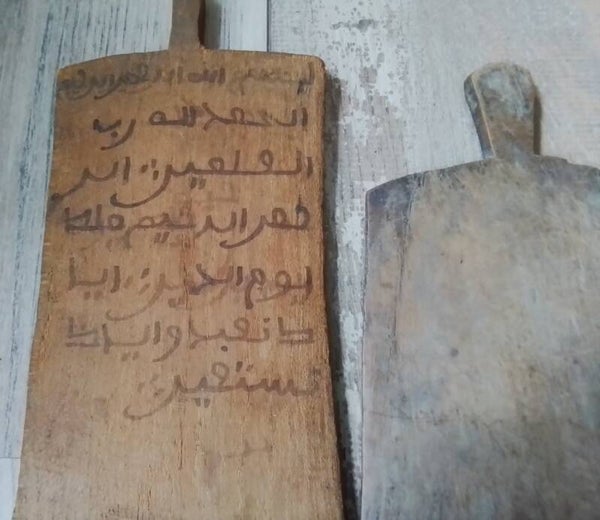 بسم الله الرحمن الرحيم
الحمد لله رب
العلمين الر
حمن الرحيم ملك
يوم الدين ايا
ك نعبد واياك
نستعين